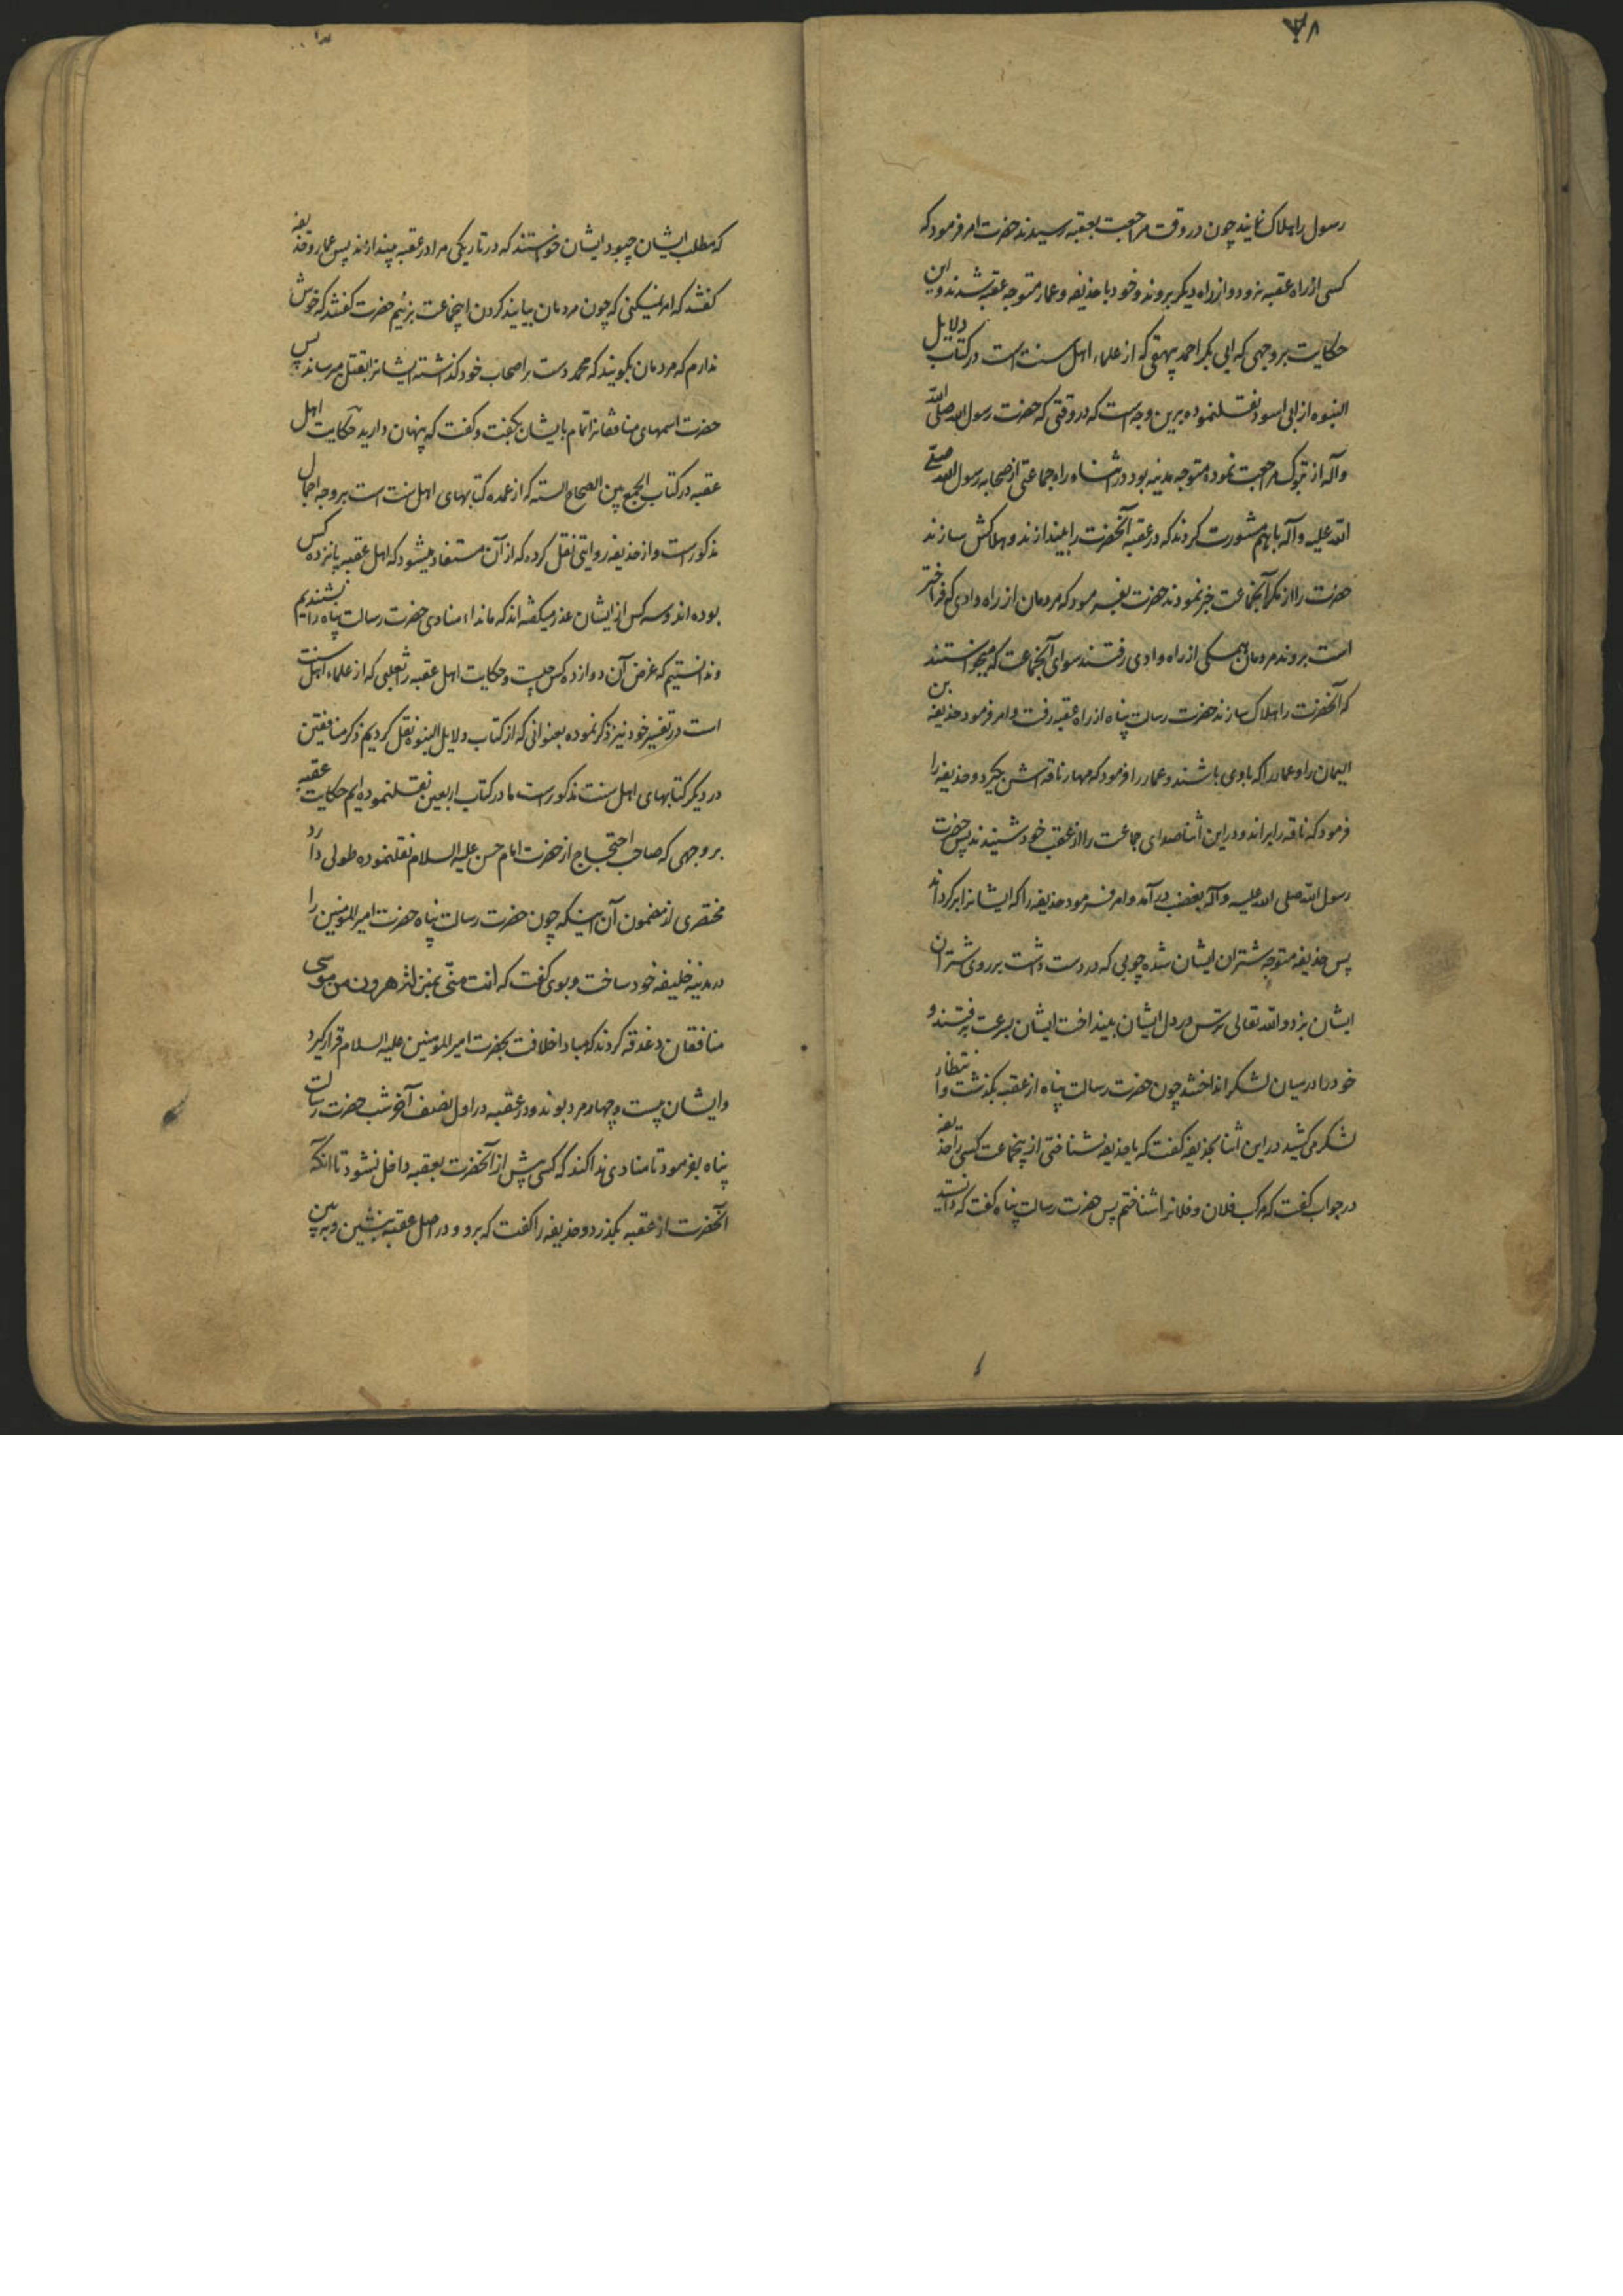 ۷۸
رسول را هلاک نمایند چون در وقت مراجعت بعقبه رسیدند حضرت امر فرمود که
کسی از راه عقبه نرود و از راه دیگر بروند و خود با حذیفه و عمار متوجه عقبه شدند و این
حکایت بر وجهی که ابی بکر احمد بیهقی که از علماء اهل سنت است در کتاب دلایل
النبوه از ابی اسود نقلنموده برین وجه است که در وقتی که حضرت رسول الله صلی الله
و آله از تبوک مراجعت نموده متوجه مدینه بود در اثناء راه جماعتی از صحابه رسول الله صلی
الله علیه و آله با هم مشورت کردند که در عقبه آنحضرت را بیندازند و هلاکش سازند
حضرت را از مکر آنجماعت خبر نمودند حضرت بفرمود که مردمان از راه وادی که فراختر
است بروند مردمان همکی از راه وادی رفتند سوای آنجماعت که میخواستند
که آنحضرت را هلاک سازند حضرت رسالت پناه از راه عقبه رفت و امر فرمود حذیفه بن
الیمان را و عمار را که با وی باشند و عمار را فرمود که مهار ناقه اش بگیرد و حذیفه را
فرمود که ناقه را براند و در این اثنا صدای جماعت را از عقب خود شنیدند پس حضرت
رسول الله صلی الله علیه و آله بغضب در آمد و امر فرمود حذیفه را که ایشانرا برکرداند
پس حذیفه متوجه شتران ایشان شده چوبی که در دست داشت بر روی شتران
ایشان بزد و الله تعالی ترس در دل ایشان بینداخت ایشان بسرعت برفتند و
خود را در میان لشکر انداختند چون حضرت رسالت پناه از عقبه بکذشت و انتظار
لشکر می کشید در این اثنا بحذیفه کفت که یا حذیفه شناختی از ینجماعت کسی را حذیفه
در جواب کفت که مرکب فلان و فلانرا شناختم پس حضرت رسالت پناه کفت که دانستید
که مطلب ایشان چبود ایشان خواستند که در تاریکی مرا در عقبه بیندازند پس عمار و حذیفه
کفتند که امر نمیکنی که چون مردمان بیایند کردن اینجماعت بزنیم حضرت کفتند که خوش
ندارم که مردمان بکویند که محمد دست بر اصحاب خود کذاشته ایشانرا بقتل میرساند پس
حضرت اسمهای منافقانرا تمام بایشان بکفت و کفت که پنهان دارید حکایت اهل
عقبه در کتاب الجمع بین الصحاح الستة که از عمده کتابهای اهل سنت است بر وجه اجمال
مذکور است و از حذیفه روایتی نقل کرده که از آن مستفاد میشود که اهل عقبه پانزده کس
بوده اند و سه کس از ایشان عذر میکفته اند که ما نداء منادی حضرت رسالت پناه را نشنیدیم
و ندانستیم که غرض آن دوازده کس چیست و حکایت اهل عقبه را ثعلبی که از علماء اهل سنت
است در تفسیر خود نیز ذکر نموده بعنوانی که از کتاب دلایل النبوه نقل کردیم ذکر منافقین
در دیکر کتابهای اهل سنت مذکور است ما در کتاب اربعین نقلنموده ایم حکایت عقبه
بر وجهی که صاحب احتجاج از حضرت امام حسن علیه السلام نقلنموده طولی دارد
مختصری از مضمون آن اینکه چون حضرت رسالت پناه حضرت امیر المومنین را
در مدینه خلیفه خود ساخت و بوی کفت که انت منّی بمنزلة هرون من موسی
منافقان دغدغه کردند که مبادا خلافت بحضرت امیر المومنین علیه السلام قرار کیرد
و ایشان بیست و چهار مرد بودند و در عقبه در اول نصف آخر شب حضرت رسالت
پناه بفرمود تا منادی ندا کند که کسی پیش از آنحضرت بعقبه داخل نشود تا آنکه
آنحضرت از عقبه بکذرد و حذیفه را کفت که برو و در اصل عقبه بنشین و ببین